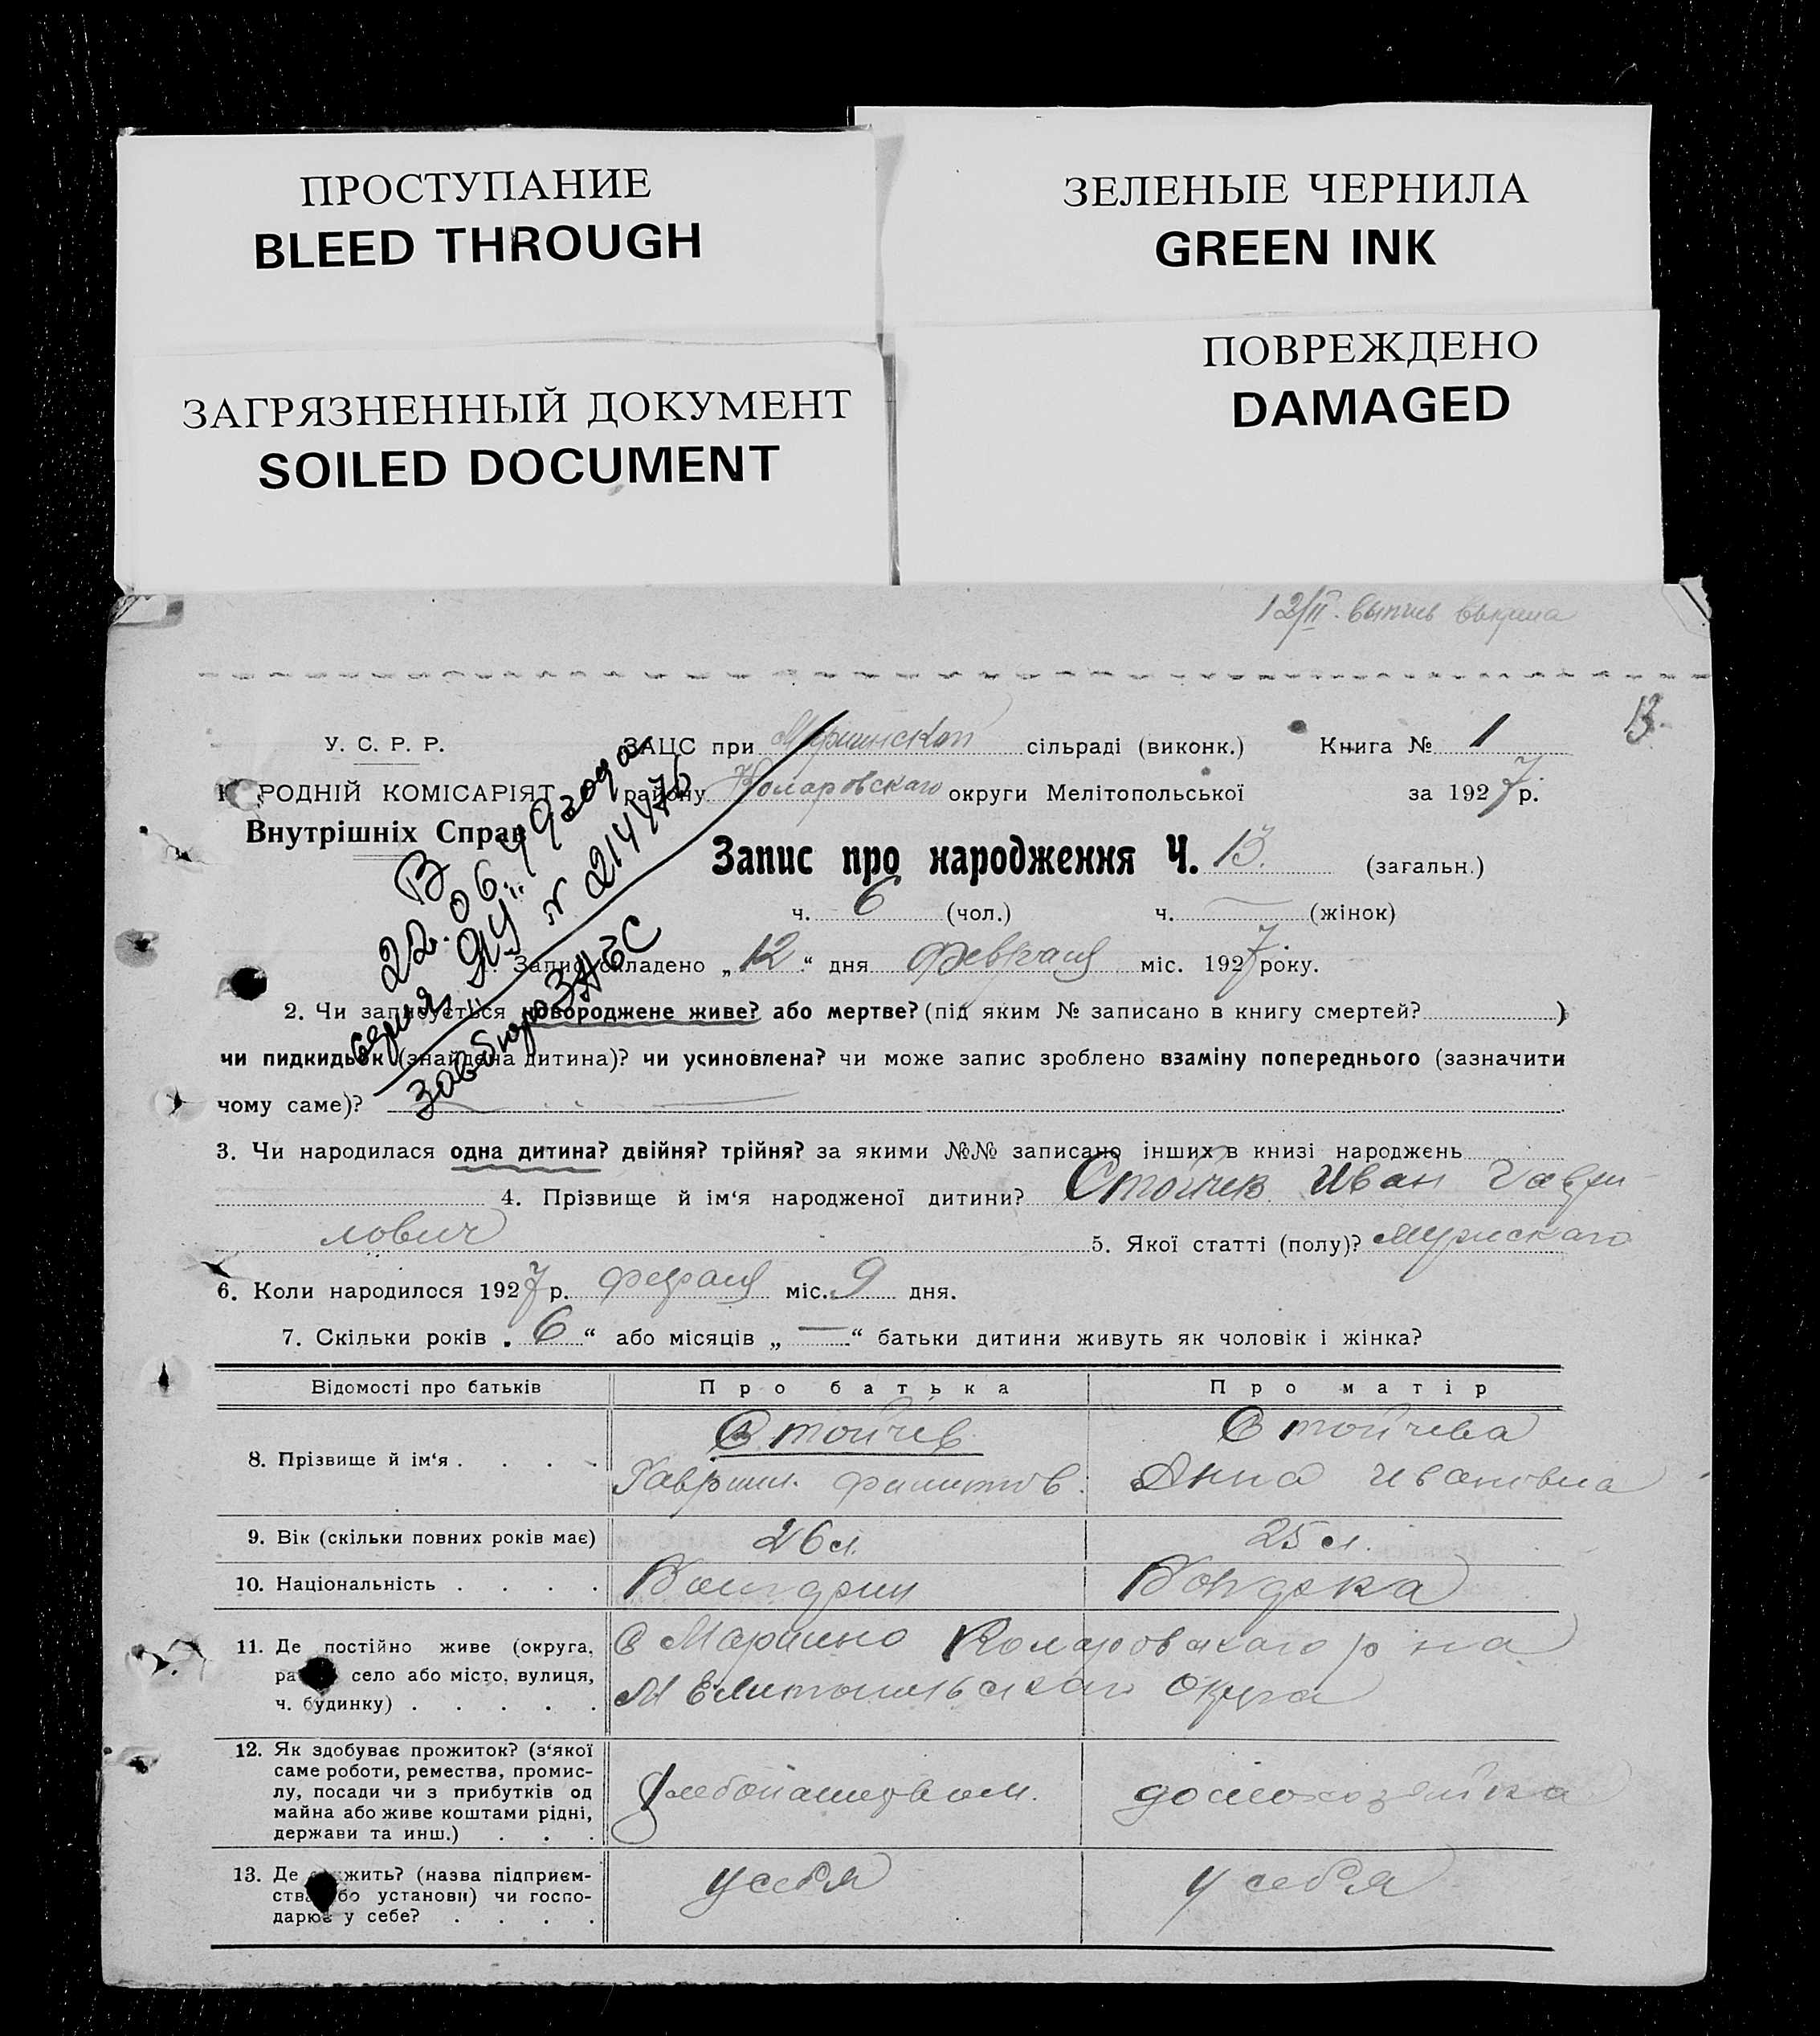 ПРОСТУПАНИЕ
BLEED THROUGH
ЗЕЛЕНЫЕ ЧЕРНИЛА
GREEN INK
ЗАГРЯЗНЕННЫЙ ДОКУМЕНТ
SOILED DOCUMENT
ПОВРЕЖДЕНО
DAMAGED
12/II. выпись
13.
У. С. Р. Р.
РОДНІЙ КОМІСАРІЯТ
Внутрішніх Справ
ЗАЦС при сільраді (виконк.) Книга № 1
району Коларовскаго округи Мелітопольської за 1927 р.
Запис про народження Ч. 13. (загальн.)
ч. 6 (чол.) ч. — (жінок)
В
22. 06. 49 года
серия ЯЧ № 214476
Завбюро ЗАГС
1. Запис складено „12“ дня февраля міс. 1927 року.
2. Чи записується новороджене живе? або мертве? (під яким № записано в книгу смертей? )
чи пидкидьок (знайдена дитина)? чи усиновлена? чи може запис зроблено взаміну попереднього (зазначити
чому саме)? —
3. Чи народилася одна дитина? двійня? трійня? за якими №№ записано інших в книзі народжень
4. Прізвище й ім‘я народженої дитини? Стойчев Иван Гаври-
лович 5. Якої статті (полу)? мужскаго
6. Коли народилося 1927 р. февраля міс. 9 дня.
7. Скільки років „6“ або місяців „—“ батьки дитини живуть як чоловік і жінка?
Відомості про батьків Про батька Про матір
8. Прізвище й ім‘я . . . . Стойчев Стойчева
Гавриил. Филипов. Анна Ивановна
9. Вік (скільки повних років має) 26 л. 25 л.
10. Національність . . . . Болгарин Болгарка
11. Де постійно живе (округа, село або місто, вулиця, ч. будинку) . . . . .
с Марьино Коларовскаго р на
Мелитопольскаго округа
12. Як здобуває прожиток? (з‘якої саме роботи, ремества, промис-
лу, посади чи з прибутків од
майна або живе коштами рідні,
держави та инш.) . . . хлебопашеством. домохозяйка
13. Де жить? (назва підприєм-
ства або установи) чи госпо-
дарює у себе? . . . . у себя у себя